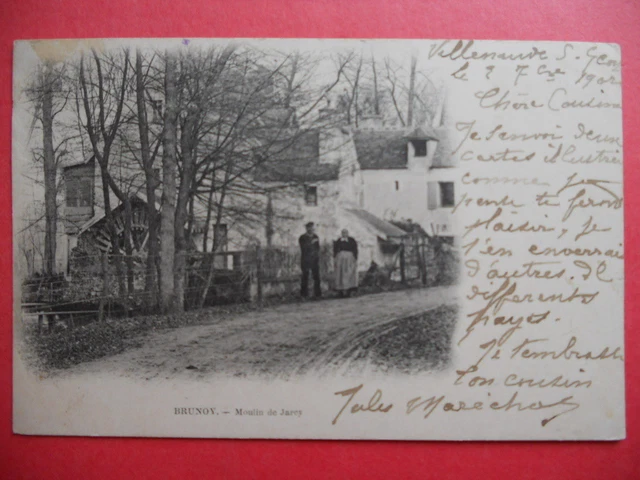 Villeneuve S. Geor
le 2 7bre 1902
Chère Cousine
Je t'envoi deux
cartes illustrée
comme je
pense te feront
plaisir, je
t'en enverrai
d'autres, de
différents
pays.
Je t'embrasse
ton cousin
Jules Maréchal
BRUNOY. — Moulin de Jarcy